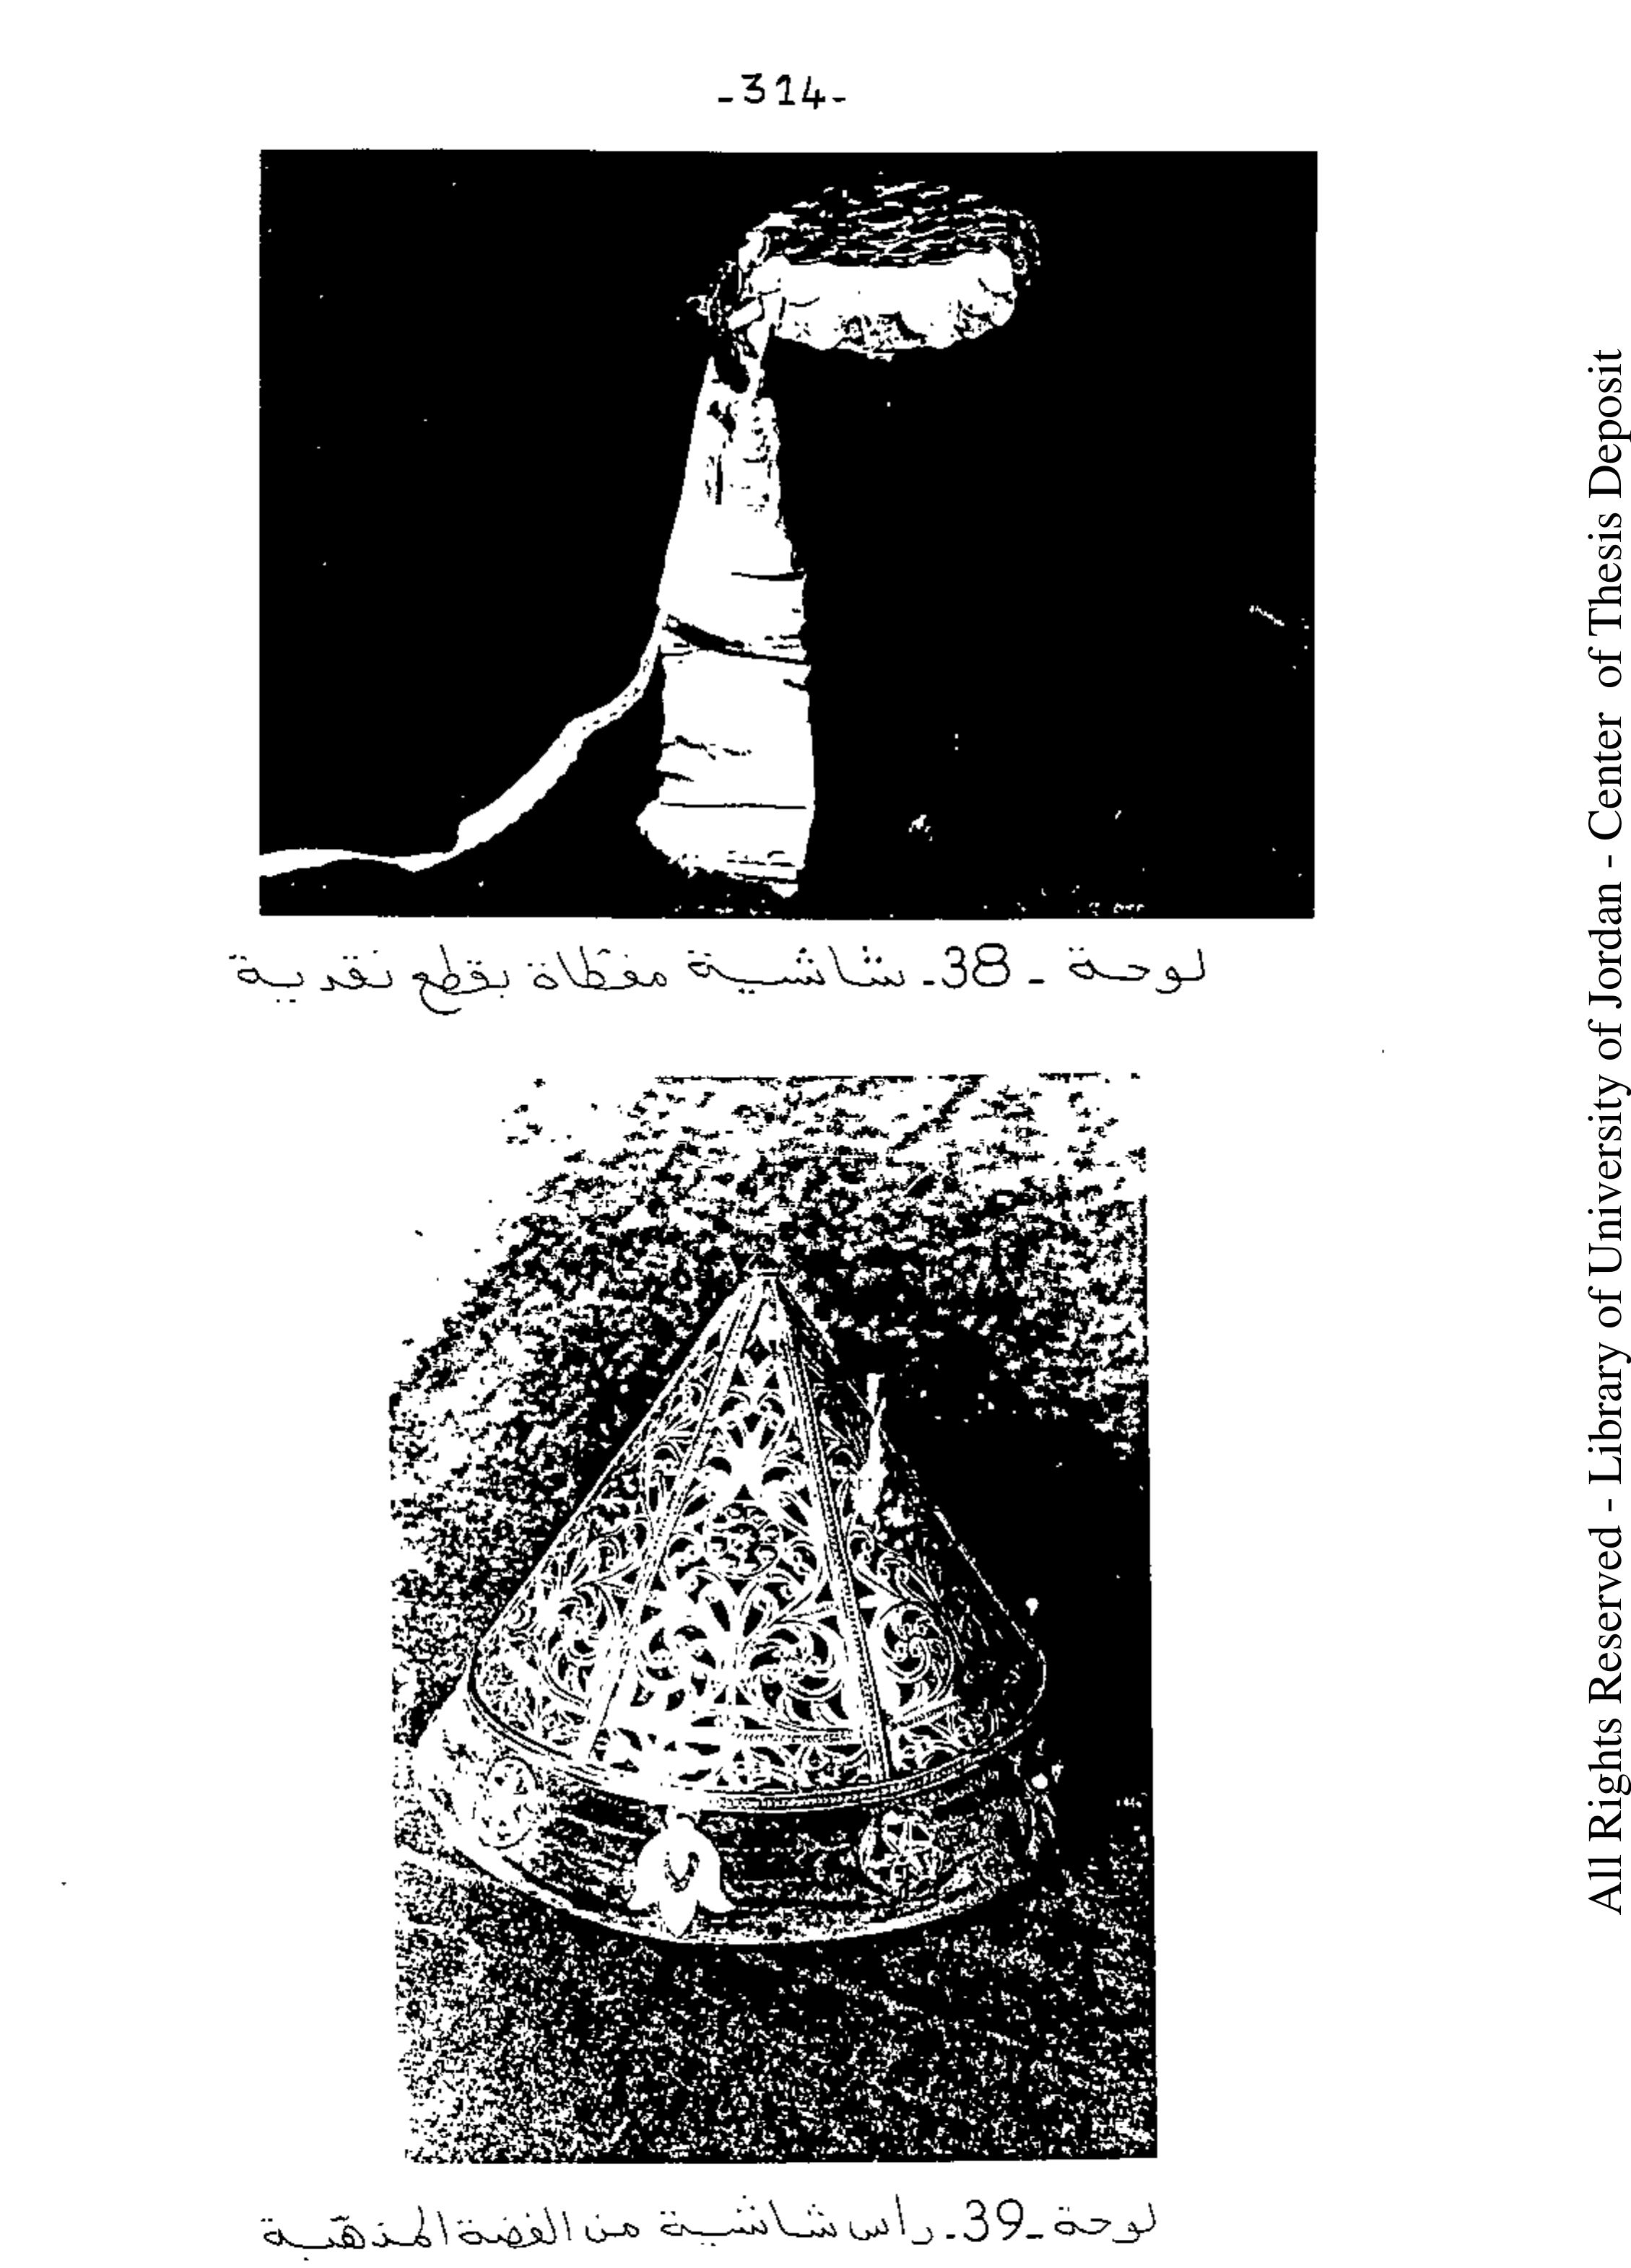 -314-
لوحة - 38- شاشية مغطاة بقطع نقدية
لوحة -39- رأس شاشية من الفضة المذهبة
All Rights Reserved - Library of University of Jordan - Center of Thesis Deposit